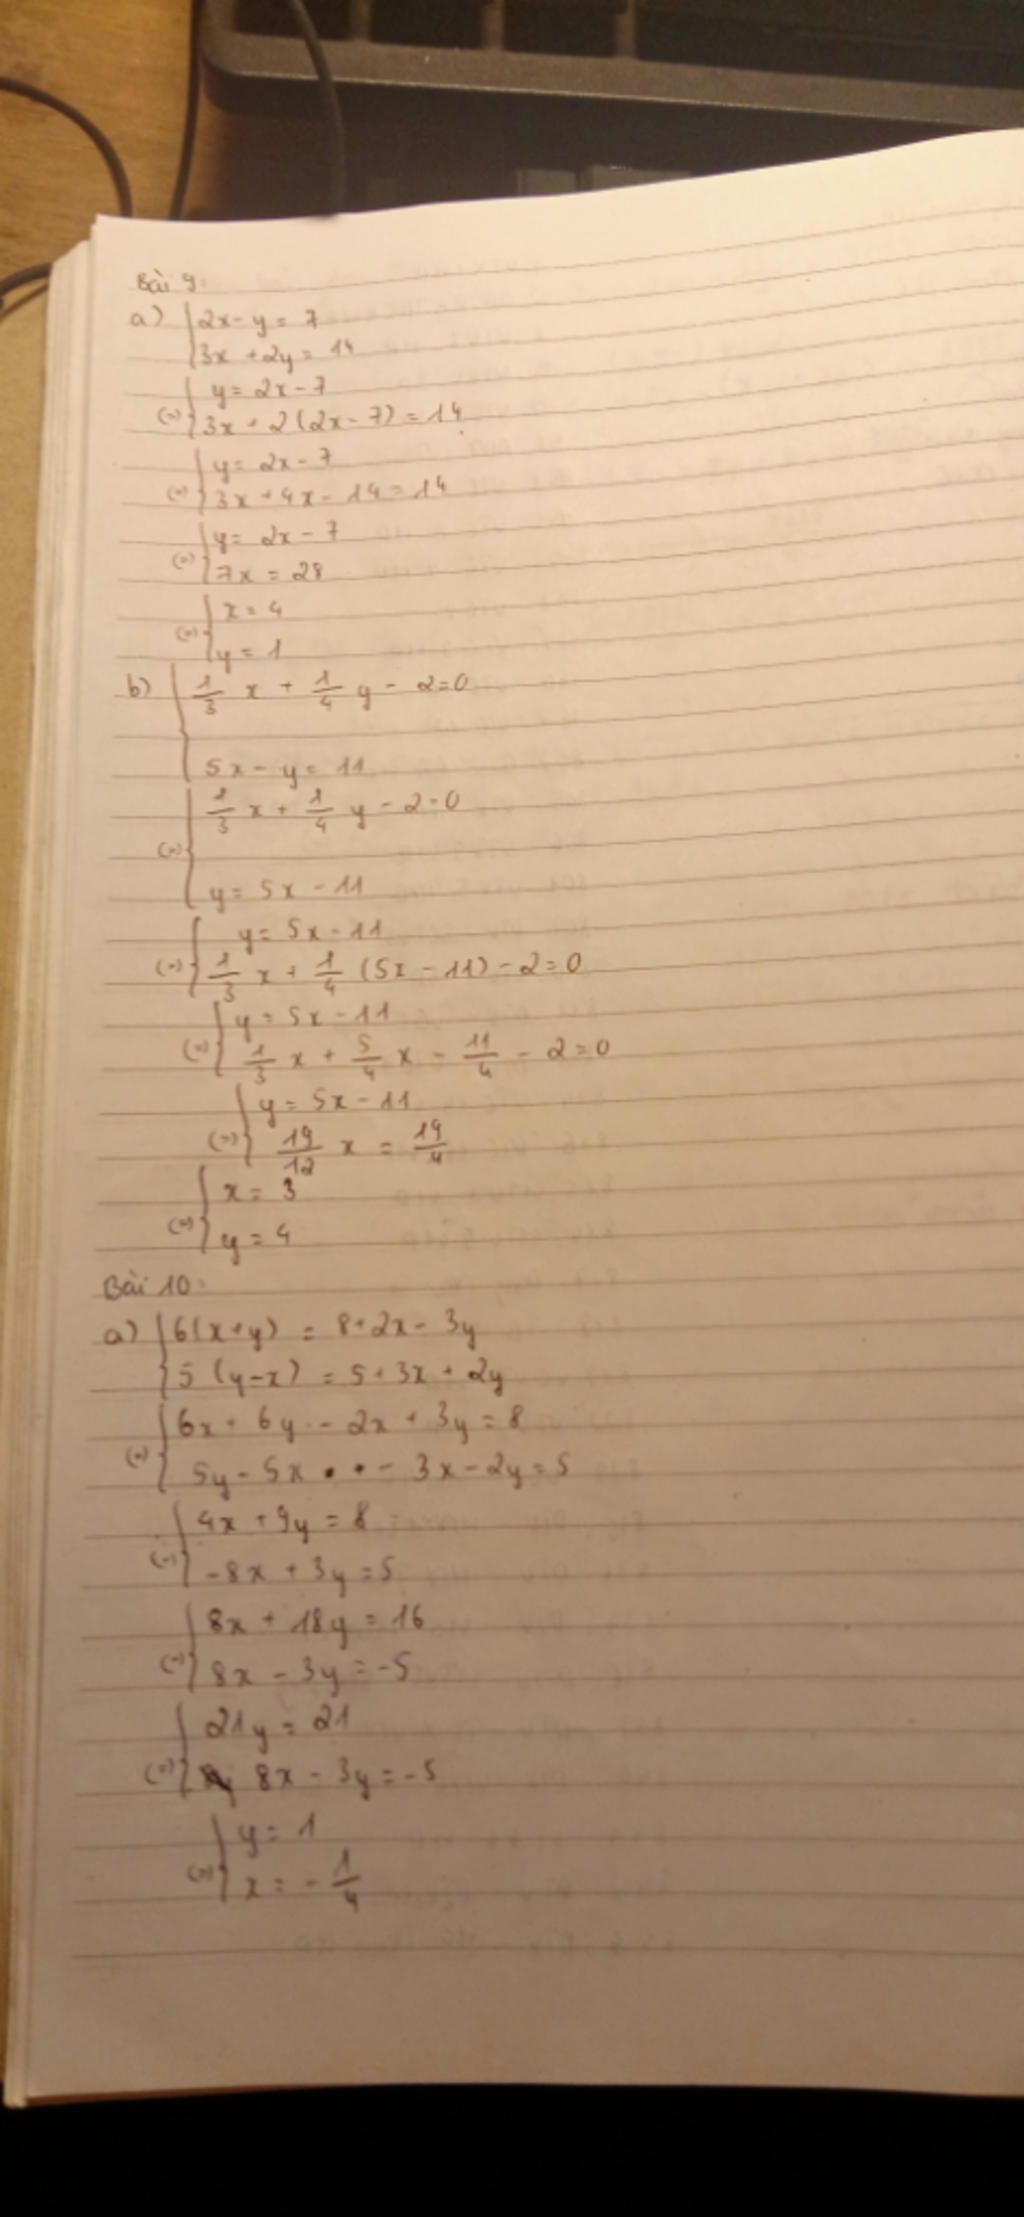 Bài 9:
a) { 2x - y = 7
3x + 2y = 14
(=) { y = 2x - 7
3x + 2(2x - 7) = 14
(=) { y = 2x - 7
3x + 4x - 14 = 14
(=) { y = 2x - 7
7x = 28
(=) { x = 4
y = 1
b) { 1/3 x + 1/4 y - 2 = 0
5x - y = 11
(=) { 1/3 x + 1/4 y - 2 = 0
y = 5x - 11
(=) { y = 5x - 11
1/3 x + 1/4 (5x - 11) - 2 = 0
(=) { y = 5x - 11
1/3 x + 5/4 x - 11/4 - 2 = 0
(=) { y = 5x - 11
19/12 x = 19/4
(=) { x = 3
y = 4
Bài 10:
a) { 6(x+y) = 8 + 2x - 3y
5(y-x) = 5 + 3x + 2y
(=) { 6x + 6y - 2x + 3y = 8
5y - 5x - 3x - 2y = 5
(=) { 4x + 9y = 8
-8x + 3y = 5
(=) { 8x + 18y = 16
8x - 3y = -5
(=) { 21y = 21
8x - 3y = -5
(=) { y = 1
x = - 1/4